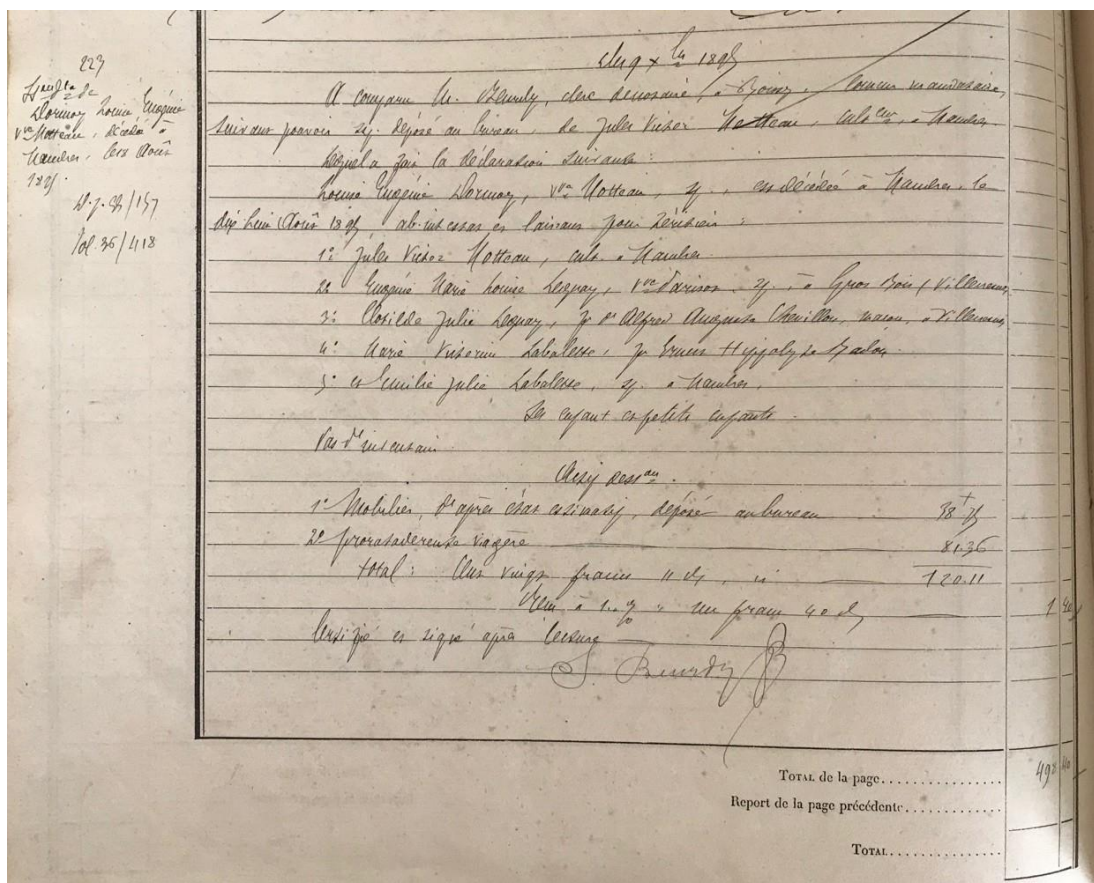 223
Dormoy Louise Eugénie
Vve Motteau, décédée à
Mandres, le 18 Août
1895
D.p. 23/157
Vol. 36/418
du 9 xbre 1895
A comparu M. Beurdy, clerc de notaire, à Boissy, comme mandataire,
suivant pouvoir sp. déposé au bureau, de Jules Victor Motteau, culteur, à Mandres
Lequel a fait la déclaration suivante :
Louise Eugénie Dormoy, Vve Motteau, sp., est décédée à Mandres, le
dix huit Août 1895, ab-intestat et laissant pour héritiers :
1° Jules Victor Motteau, cult. à Mandres.
2° Eugénie Marie Louise, Vve, sp., à Gros Bois (
3° Clotilde Julie, fe de Alfred Auguste Chevillon, maçon, à
4° Marie Labalette, fe Ernest Hippolyte
5° et Emilie Julie Labalette, sp. à Mandres.
Ses enfant et petits enfants.
Pas d'inventaire.
Actif
1° Mobilier, d'après état estimatif, déposé au bureau 38 75
2° prorata de rente viagère 81.36
Total : Cent vingt francs 11 cs, ci 120.11
à 1 % un franc 40 cs 1 40
Certifié et signé après lecture
Beurdy
TOTAL de la page 40
Report de la page précédente
TOTAL